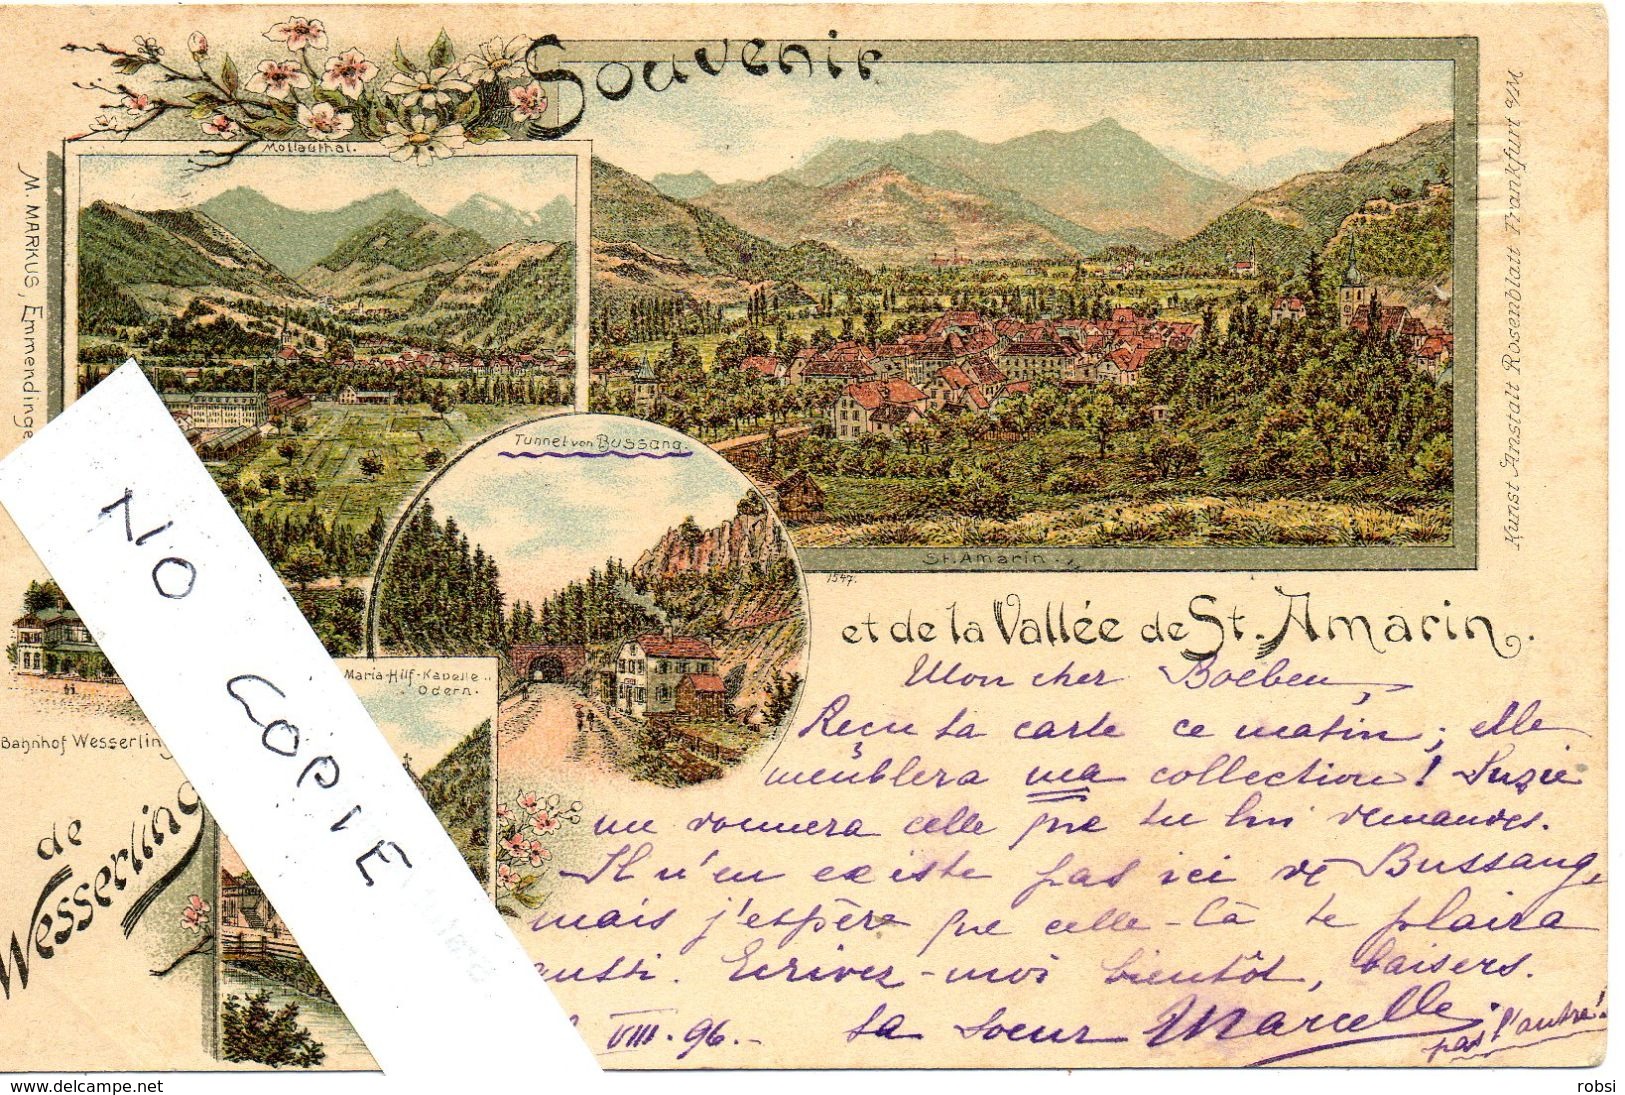 Souvenir
Mollauthal.
M. MARKUS, Emmendinge
Kunst Anstalt Rosenblatt Frankfurt a/M
Tunnel von Bussang.
St. Amarin.
1547.
et de la Vallée de St. Amarin.
Maria-Hilf-Kapelle
Odern.
Bahnhof Wesserling
de
Wesserling
NO COPIE
Mon cher Boeben,
Reçu ta carte ce matin; elle
meublera ma collection! Suzie
me donnera celle que tu lui demandes.
Il n'en existe pas ici de Bussang,
mais j'espère que celle-là te plaira
aussi. Ecrivez-moi bientôt, baisers.
VIII. 96.- ta soeur Marcelle.
pas l'autre!
www.delcampe.net
robsi